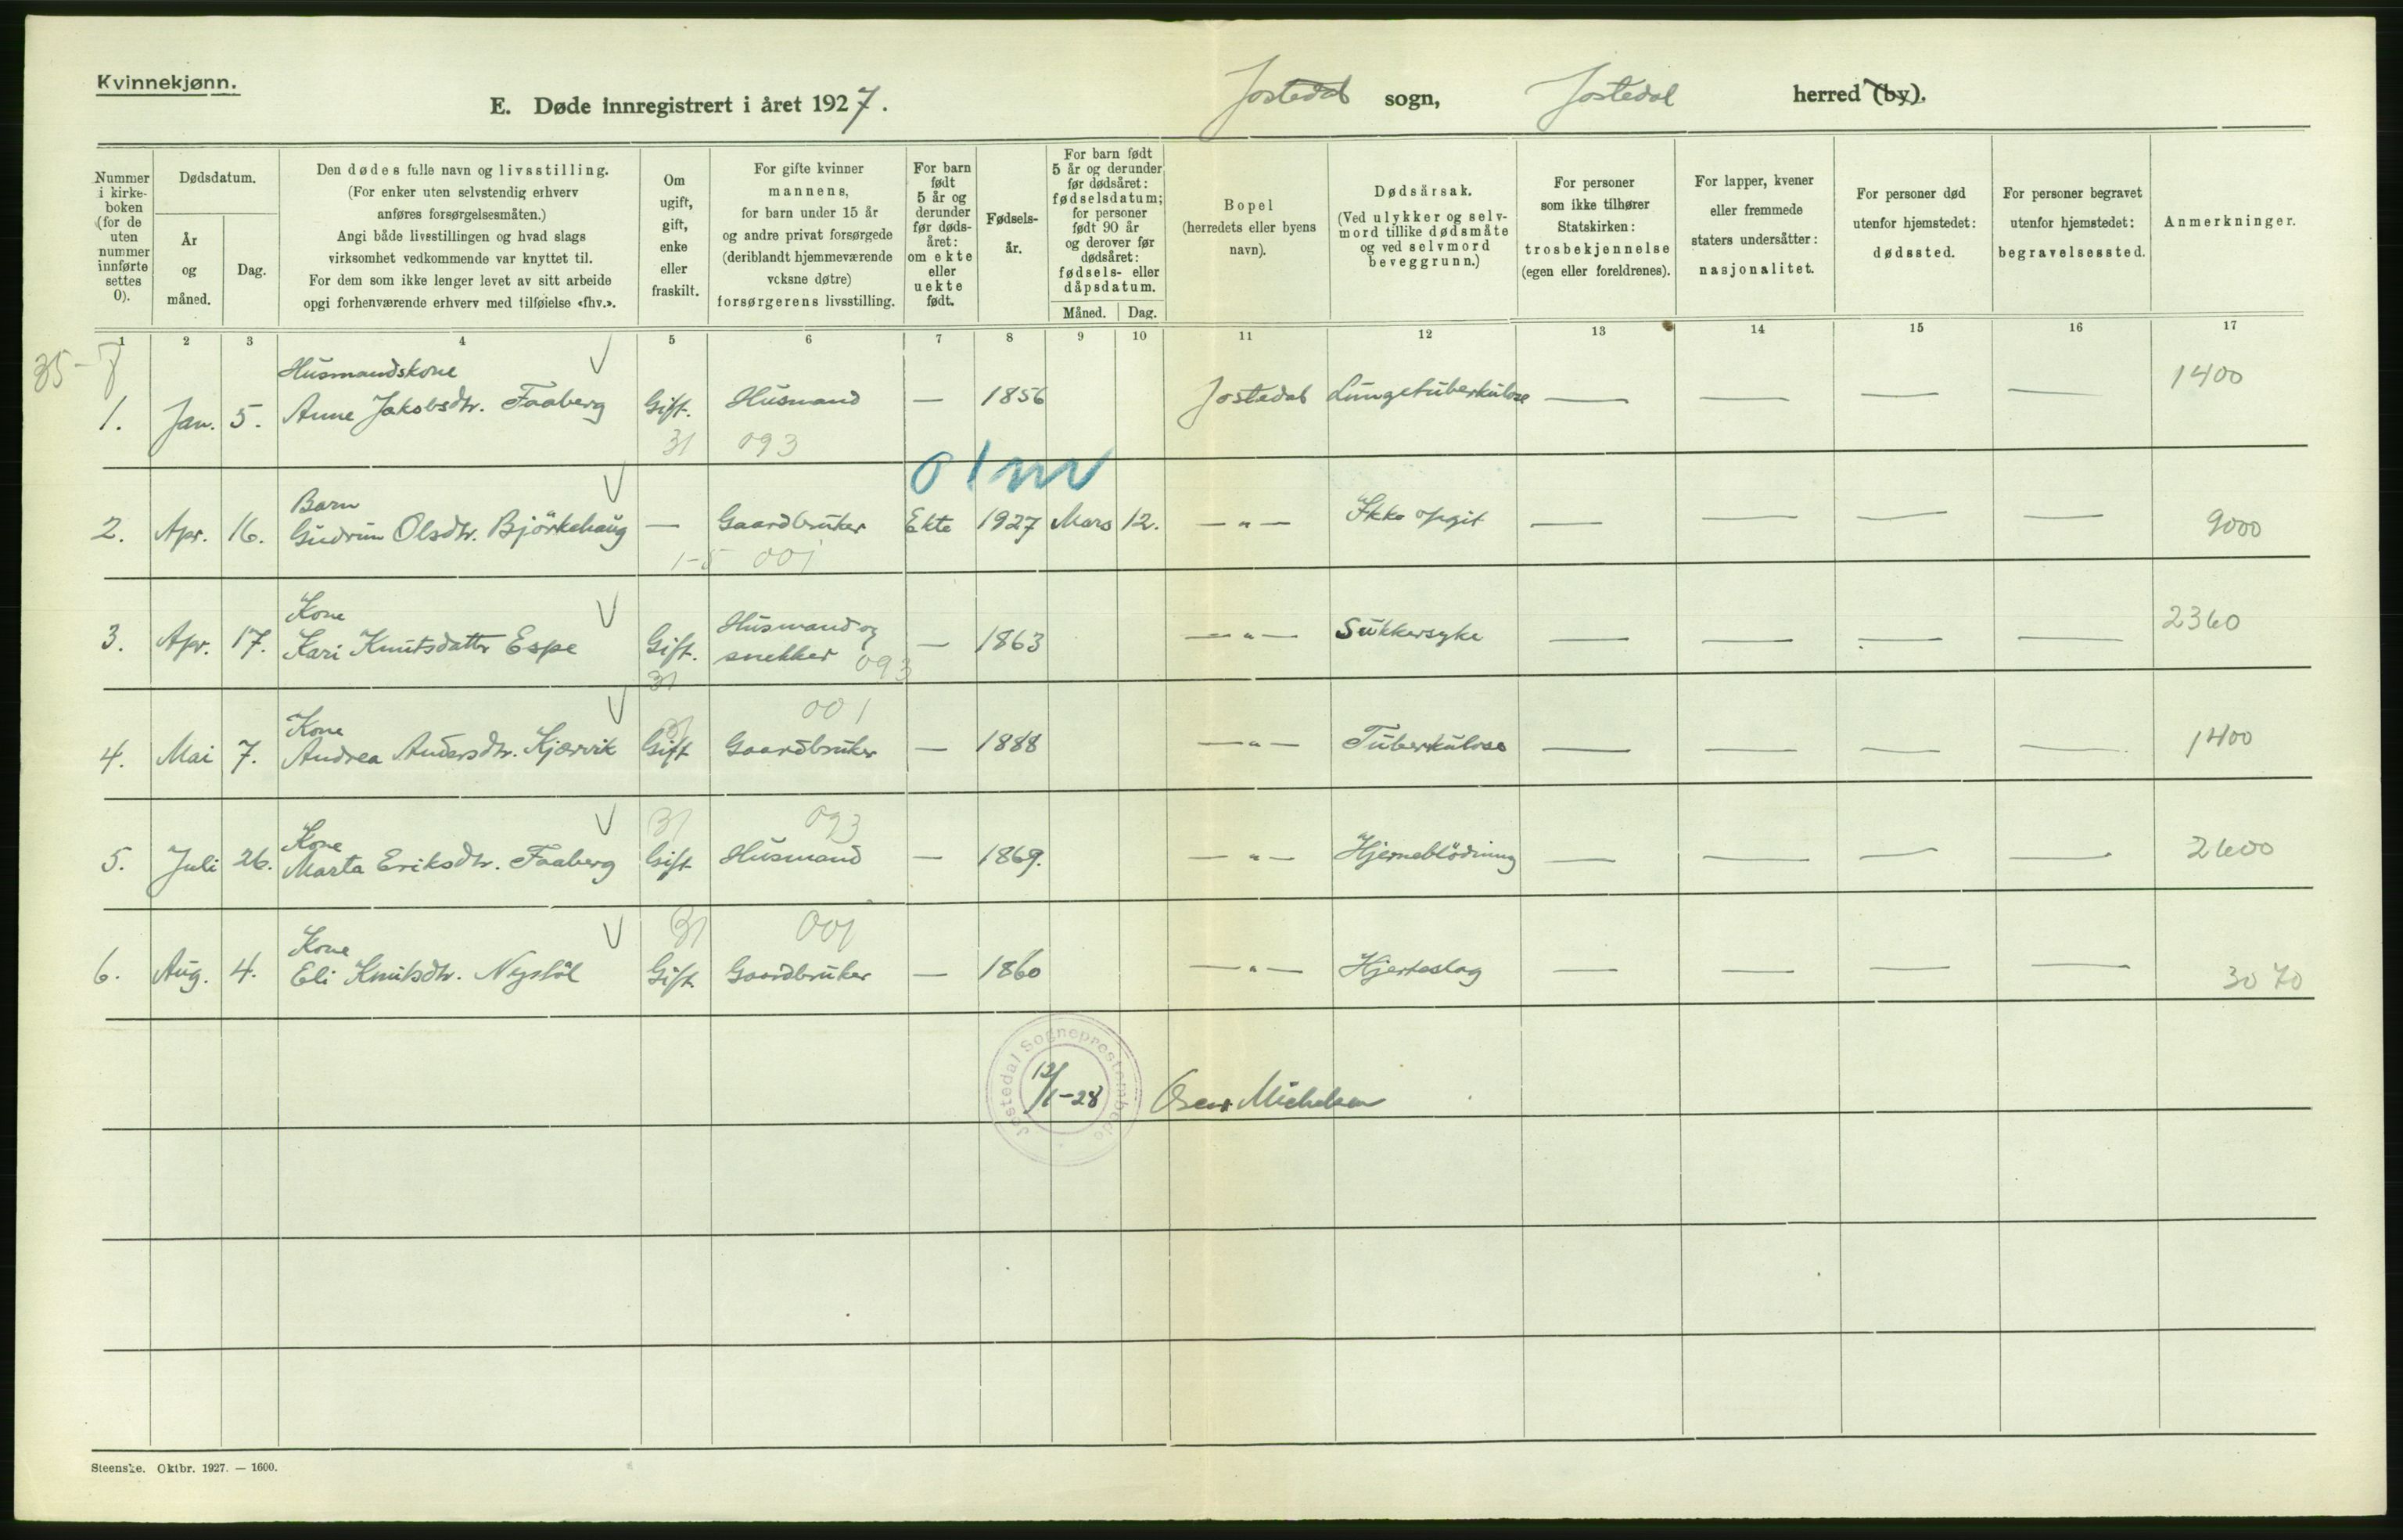 Kvinnekjønn.
E. Døde innregistrert i året 1927.
Jostedal sogn, Jostedal herred (by).
Nummer i kirke- boken (for de uten nummer innførte settes 0).
Dødsdatum.
År og måned.
Dag.
Den dødes fulle navn og livsstilling.
(For enker uten selvstendig erhverv
anføres forsørgelsesmåten.)
Angi både livsstillingen og hvad slags
virksomhet vedkommende var knyttet til.
For dem som ikke lenger levet av sitt arbeide
opgi forhenværende erhverv med tilføielse «fhv.».
Om
ugift,
gift,
enke
eller
fraskilt.
For gifte kvinner
mannens,
for barn under 15 år
og andre privat forsørgede
(deriblandt hjemmeværende
voksne døtre)
forsørgerens livsstilling.
For barn
født
5 år og
derunder
før døds-
året:
om ekte
eller
uekte
født.
Fødsels-
år.
For barn født
5 år og derunder
før dødsåret:
fødselsdatum;
for personer
født 90 år
og derover før
dødsåret:
fødsels- eller
dåpsdatum.
Måned. Dag.
Bopel
(herredets eller byens
navn).
Dødsårsak.
(Ved ulykker og selv-
mord tillike dødsmåte
og ved selvmord
beveggrunn.)
For personer
som ikke tilhører
Statskirken:
trosbekjennelse
(egen eller foreldrenes).
For lapper, kvener
eller fremmede
staters undersåtter:
nasjonalitet.
For personer død
utenfor hjemstedet:
dødssted.
For personer begravet
utenfor hjemstedet:
begravelsessted.
Anmerkninger.
1 2 3 4 5 6 7 8 9 10 11 12 13 14 15 16 17
Husmandskone
1. Jan. 5. Anne Jakobsdtr. Faaberg Gift. Husmand — 1856 Jostedal Lungetuberkulose — — — — 1400
31 093
Barn
2. Apr. 16. Gudrun Olsdtr. Björkehaug — Gaardbruker Ekte 1927 Mars 12. — " — Ikke opgit — — — — 9000
1-5 001
Kone
3. Apr. 17. Kari Knutsdatter Espe Gift. Husmand og snekker — 1863 — " — Sukkersyke — — — — 2360
31 093
001
Kone
4. Mai 7. Andrea Andersdtr. Kjærvik Gift Gaardbruker — 1888 — " — Tuberkulose — — — — 1400
31 093
Kone
5. Juli 26. Marta Eriksdtr. Faaberg Gift Husmand — 1869. — " — Hjerneblödning — — — — 2600
31 001
Kone
6. Aug. 4. Eli Knutsdtr. Nystöl Gift. Gaardbruker — 1860 — " — Hjerteslag — — — — 3070
Jostedal Sogneprestembede
12/1-28 Michelsen
Steenske. Oktbr. 1927. — 1600.